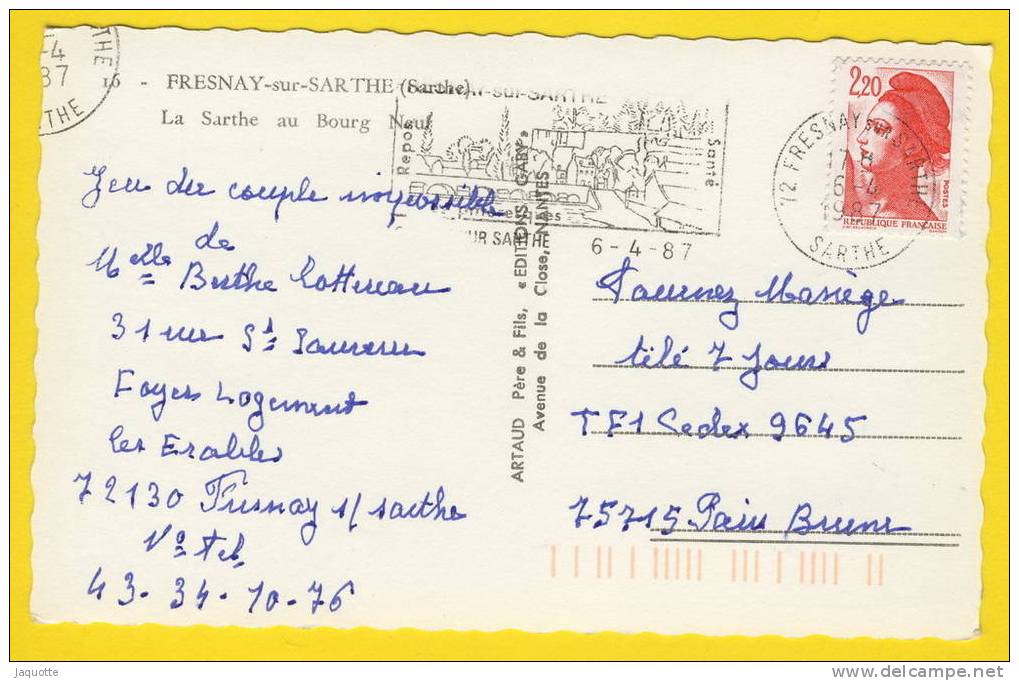 16 - FRESNAY-sur-SARTHE (Sarthe)
La Sarthe au Bourg Neuf
Repos
Santé
SUR SARTHE
6-4-87
2,20
POSTES
REPUBLIQUE FRANÇAISE
72 FRESNAY SUR SARTHE
17 H
6-4
1987
SARTHE
-4
87
ARTAUD Père & Fils, « EDITIONS GABY »
Avenue de la Close, NANTES
Jeu du couple impossible
de
Melle Berthe Cottereau
31 rue St Sauveur
Foyer Logement
les Erables
72130 Fresnay s/ sarthe
No tel
43-34-10-76
Tournez Manège
télé 7 Jours
TF1 Cedex 9645
75715 Paris Brune
Jaquotte
www.delcampe.net